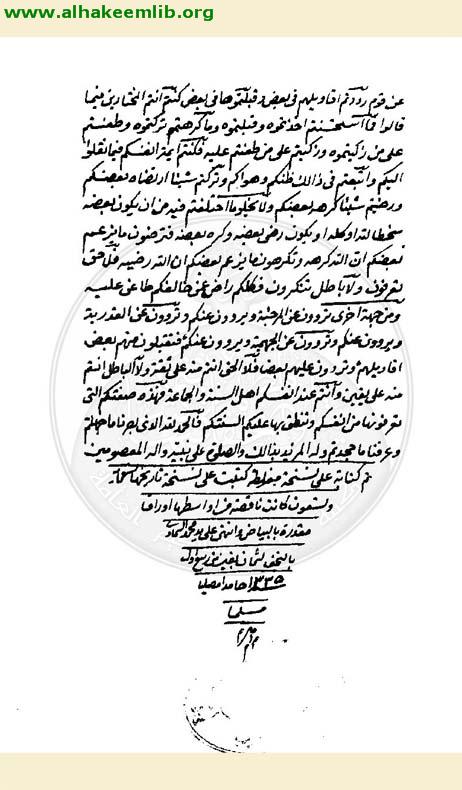 www.alhakeemlib.org
عن قوم رددتم اقاويلهم في بعض وقبلتموها في بعض كنتم انتم المختارين فيما
قالوا فما استحسنتم اخذتموه وقبلتموه وما كرهتم تركتموه وطعنتم
على من زكيتموه وزكيتم على من طعنتم عليه فكنتم ائمة انفسكم فيما نقلوا
اليكم واتبعتم في ذالك ظنكم وهواكم وتركتم شيئا ارتضاه بعضكم
ورضيتم شيئا كرهه بعضكم ولا يخلو ما اختلفتم فيه من ان يكون بعضه
سخطا لله او كله او يكون رضى بعضه وكره بعضه فترضون ما يزعم
بعضكم ان الله كرهه وتكرهون ما يزعم بعضكم ان الله رضيه فلا حق
تعرفون ولا باطل تنكرون فكلكم راض عن مخالفكم طاعن عليه
ومن جهة اخرى تروون عن المرجئة ويروون عنكم وتروون عن القدرية
ويروون عنكم وتروون عن الجهمية ويروون عنكم فتقبلون منهم بعض
اقاويلهم وتردون عليهم بعضا فلا الحق انتم منه على ثقة ولا الباطل انتم
منه على يقين وانتم عند انفسكم اهل السنة والجماعة فهذه صفتكم التي
تعرفونها من انفسكم وتنطق بها عليكم السنتكم فالحمد لله الذي بصرنا ما جهلتم
وعرفنا ما جحدتم وله المن بذالك والصلوة على نبيه واله المعصومين
تم كتابة على نسخة مغلطة كتبت على نسخة تاريخها
وتسعون كانت ناقصة من اواسطها اوراق
مقدرة بالبياض وانتهى على يد محمد السماوي
بالنجف لثمان بقين من ربيع اول
١٣٣٥ حامدا مصليا
مسلما